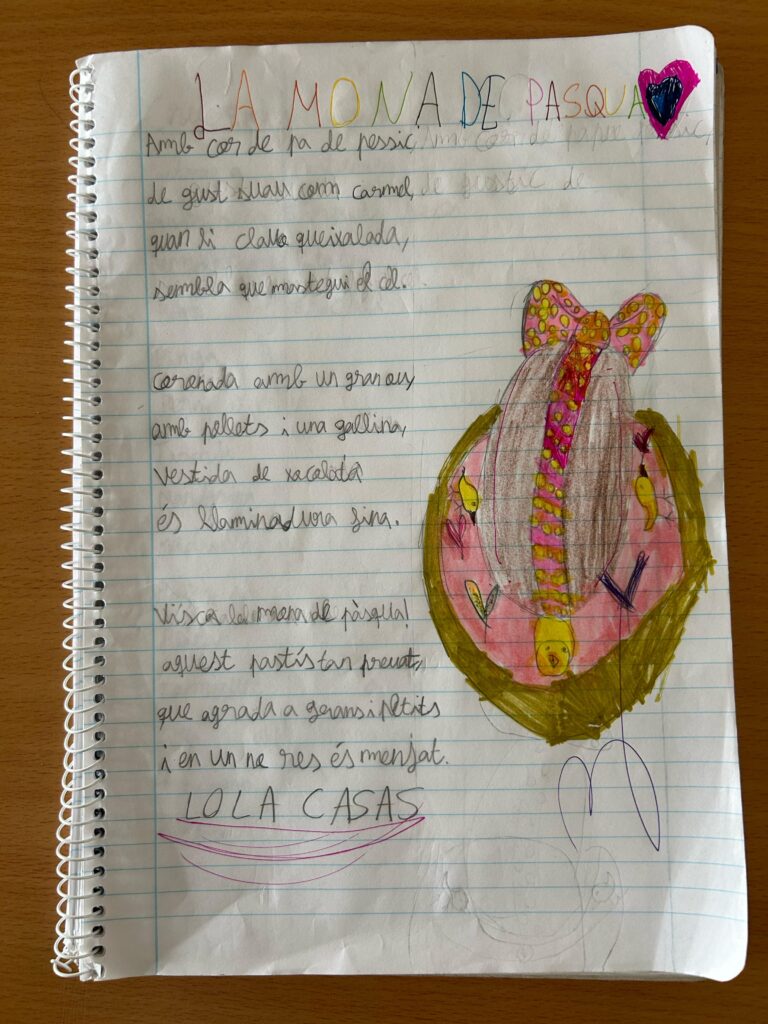 LA MONA DE PASQUA
Amb cor de pa de pessic, Amb cor de
de gust suau com carmel,
quan li clave queixalada,
sembla que mastegui el cel.
coronada amb un gran ou,
amb pollets i una gallina,
vestida de xacolata
és llaminadura fina.
Visca la mona de pàsqua!
aquest pastís tan preuat,
que agrada a gerans i petits
i en un no res és menjat.
LOLA CASAS